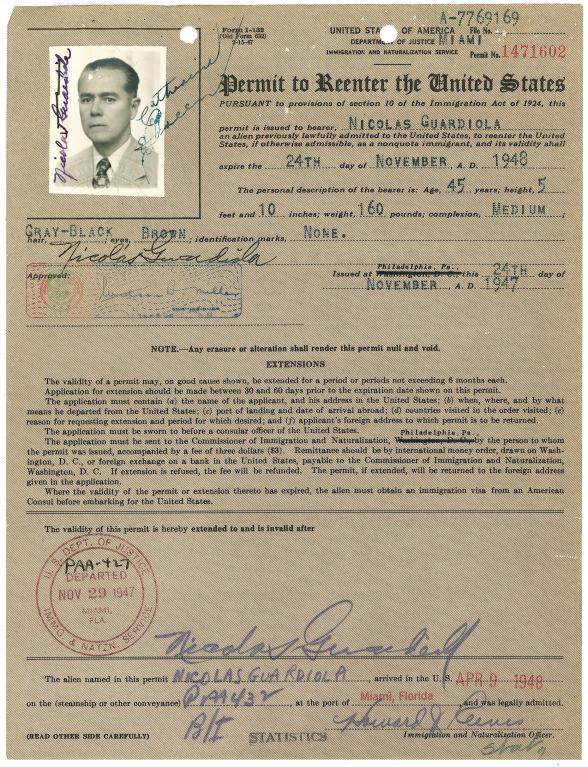 A-7769169
Form I-132
(Old Form 632)
UNITED STATES OF AMERICA File No.
DEPARTMENT OF JUSTICE MIAMI
IMMIGRATION AND NATURALIZATION SERVICE Permit No. 1471602
Nicolas Guardiola
Permit to Reenter the United States
PURSUANT to provisions of section 10 of the Immigration Act of 1924, this
permit is issued to bearer, NICOLAS GUARDIOLA
an alien previously lawfully admitted to the United States, to reenter the United
States, if otherwise admissible, as a nonquota immigrant, and its validity shall
expire the 24TH day of NOVEMBER, A. D. 1948
The personal description of the bearer is: Age, 45 years; height, 5
feet and 10 inches; weight, 160 pounds; complexion, MEDIUM;
GRAY-BLACK hair, BROWN eyes, identification marks, NONE.
Nicolas Guardiola
Approved:
Philadelphia, Pa.,
Issued at Washington, D. C., this 24TH day of
NOVEMBER, A. D. 1947
NOTE.—Any erasure or alteration shall render this permit null and void.
EXTENSIONS
The validity of a permit may, on good cause shown, be extended for a period or periods not exceeding 6 months each.
Application for extension should be made between 30 and 60 days prior to the expiration date shown on this permit.
The application must contain (a) the name of the applicant, and his address in the United States; (b) when, where, and by what
means he departed from the United States; (c) port of landing and date of arrival abroad; (d) countries visited in the order visited; (e)
reason for requesting extension and period for which desired; and (f) applicant's foreign address to which permit is to be returned.
The application must be sworn to before a consular officer of the United States.
Philadelphia, Pa.,
The application must be sent to the Commissioner of Immigration and Naturalization, Washington, D. C., by the person to whom
the permit was issued, accompanied by a fee of three dollars ($3). Remittance should be by international money order, drawn on Wash-
ington, D. C., or foreign exchange on a bank in the United States, payable to the Commissioner of Immigration and Naturalization,
Washington, D. C. If extension is refused, the fee will be refunded. The permit, if extended, will be returned to the foreign address
given in the application.
Where the validity of the permit or extension thereto has expired, the alien must obtain an immigration visa from an American
Consul before embarking for the United States.
The validity of this permit is hereby extended to and is invalid after
U. S. DEPT. OF JUSTICE
PAA-427
DEPARTED
NOV 29 1947
MIAMI,
FLA.
IMMG. & NATZN. SERVICE
Nicolas Guardiola
The alien named in this permit NICOLAS GUARDIOLA, arrived in the U. S. APR 9 1948
on the (steamship or other conveyance) PAA 432, at the port of Miami, Florida, and was legally admitted.
B/I
Howard J. Reeves
(READ OTHER SIDE CAREFULLY) STATISTICS Immigration and Naturalization Officer.